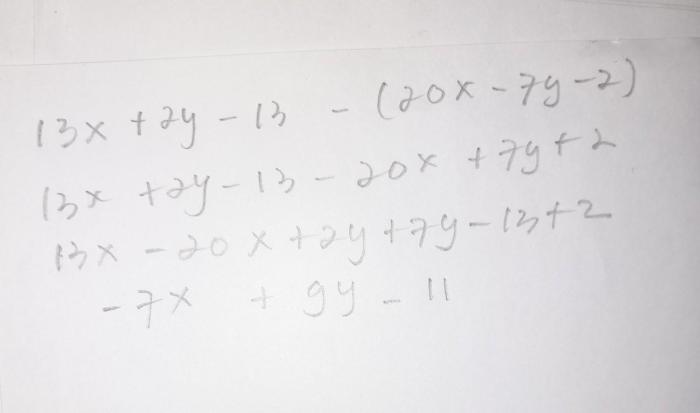 13x + 2y - 13 - (20x - 7y - 2)
13x + 2y - 13 - 20x + 7y + 2
13x - 20x + 2y + 7y - 13 + 2
-7x + 9y - 11